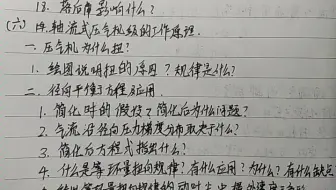 18. 落后角影响什么?
(六) 轴流式压气机级的工作原理.
一. 压气机为什么扭?
1. 绘图说明扭的原因? 规律是什么?
二. 径向平衡方程及应用.
1. 简化时的假设? 简化后为什么问题?
2. 气流沿径向压力梯度分布取决于什么?
3. 简化后方程式指出什么?
4. 什么是等环量扭向规律? 有什么应用? 为什么? 有什么缺点